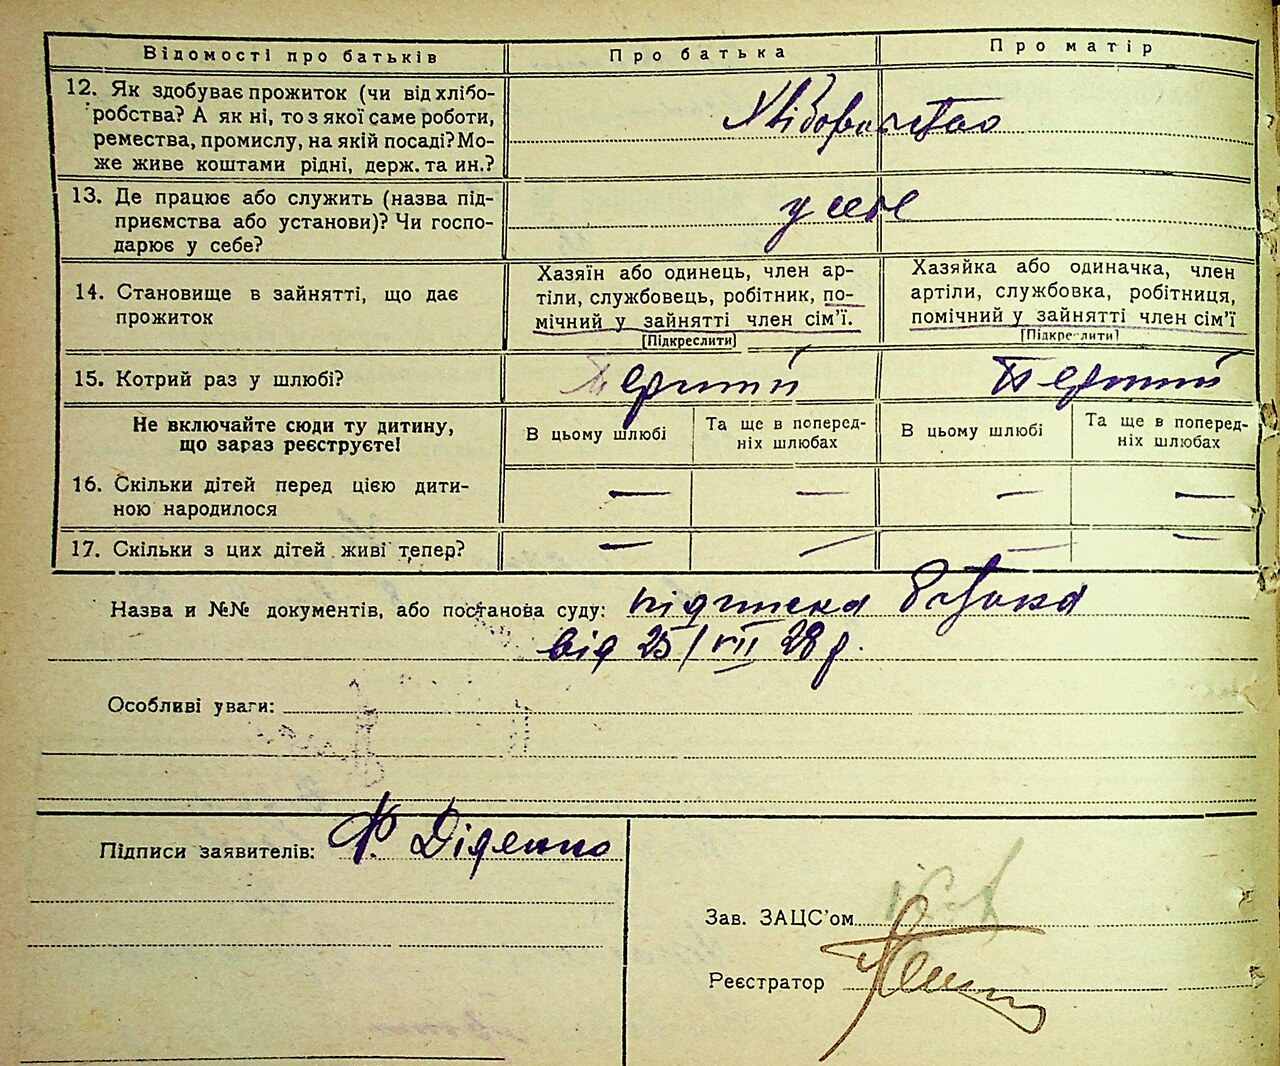 Відомості про батьків Про батька Про матір
12. Як здобуває прожиток (чи від хлібо-
робства? А як ні, то з якої саме роботи,
ремества, промислу, на якій посаді? Мо-
же живе коштами рідні, держ. та ин.?
Хліборобство
13. Де працює або служить (назва під-
приємства або установи)? Чи госпо-
дарює у себе?
у себе
14. Становище в зайнятті, що дає
прожиток
Хазяїн або одинець, член ар-
тіли, службовець, робітник, по-
мічний у зайнятті член сім'ї.
[Підкреслити]
Хазяйка або одиначка, член
артіли, службовка, робітниця,
помічний у зайнятті член сім'ї
[Підкреслити]
15. Котрий раз у шлюбі? Перший Перший
Не включайте сюди ту дитину,
що зараз реєструєте!
В цьому шлюбі
Та ще в поперед-
ніх шлюбах
В цьому шлюбі
Та ще в поперед-
ніх шлюбах
16. Скільки дітей перед цією дити-
ною народилося
— — — —
17. Скільки з цих дітей живі тепер? — — — —
Назва и №№ документів, або постанова суду: підписка батька
від 25/VII 28 р.
Особливі уваги:
Підписи заявителів: Ф. Діденко
Зав. ЗАЦС'ом
Реєстратор